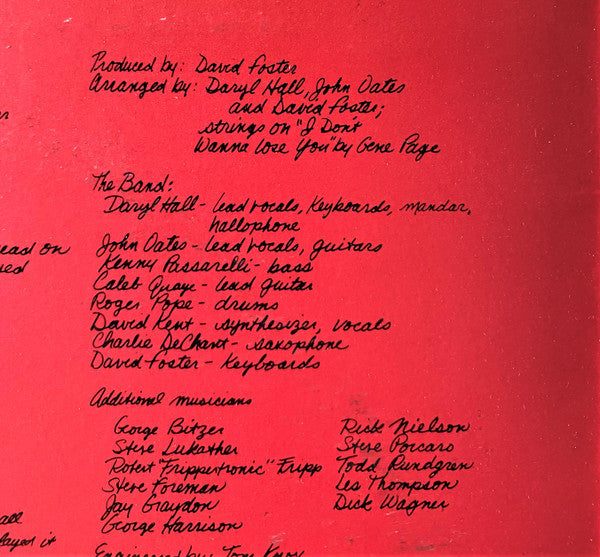 Produced by: David Foster
Arranged by: Daryl Hall, John Oates
and David Foster;
strings on "I Don't
Wanna Lose You" by Gene Page
The Band:
Daryl Hall - lead vocals, keyboards, mandar,
hallophone
John Oates - lead vocals, guitars
Kenny Passarelli - bass
Caleb Quaye - lead guitar
Roger Pope - drums
David Kent - synthesizer, vocals
Charlie DeChant - saxophone
David Foster - keyboards
Additional musicians
George Bitzer
Steve Lukather
Robert "Frippertronic" Fripp
Steve Foreman
Jay Graydon
George Harrison
Rick Nielson
Steve Porcaro
Todd Rundgren
Les Thompson
Dick Wagner
ead on
all
layed it